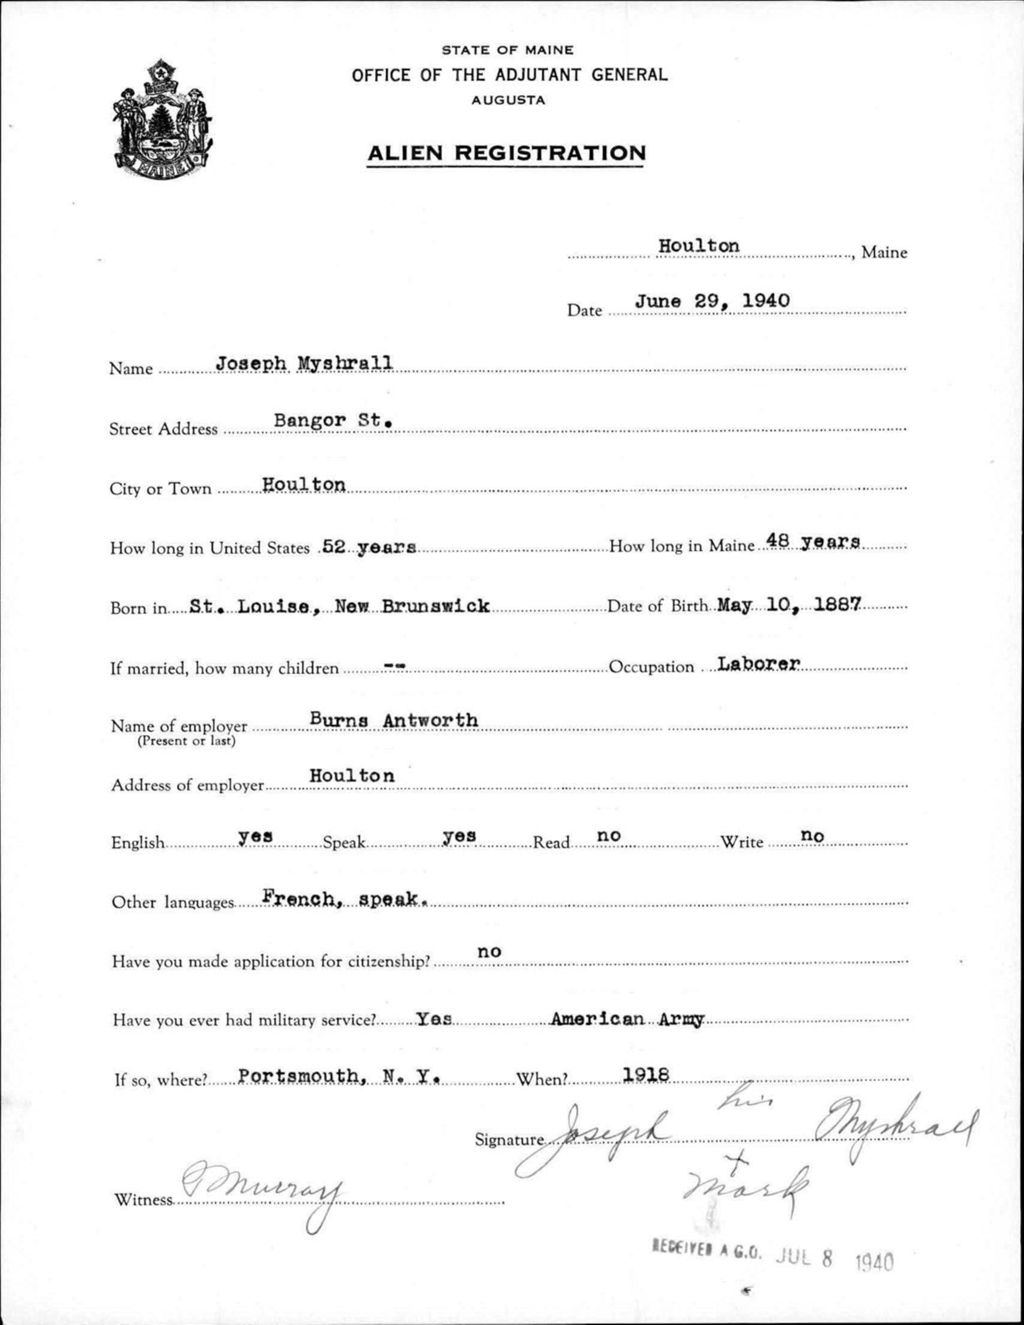 STATE OF MAINE
OFFICE OF THE ADJUTANT GENERAL
AUGUSTA
ALIEN REGISTRATION
MAINE
Houlton, Maine
Date June 29, 1940
Name Joseph Myshrall
Street Address Bangor St.
City or Town Houlton
How long in United States 52 years How long in Maine 48 years
Born in St. Louise, New Brunswick Date of Birth May 10, 1887
If married, how many children -- Occupation Laborer
Name of employer Burns Antworth
(Present or last)
Address of employer Houlton
English yes Speak yes Read no Write no
Other languages French, speak.
Have you made application for citizenship? no
Have you ever had military service? Yes American Army
If so, where? Portsmouth, N. Y. When? 1918
his
Signature Joseph Myshrall
x
Witness Murray mark
RECEIVED A.G.O. JUL 8 1940